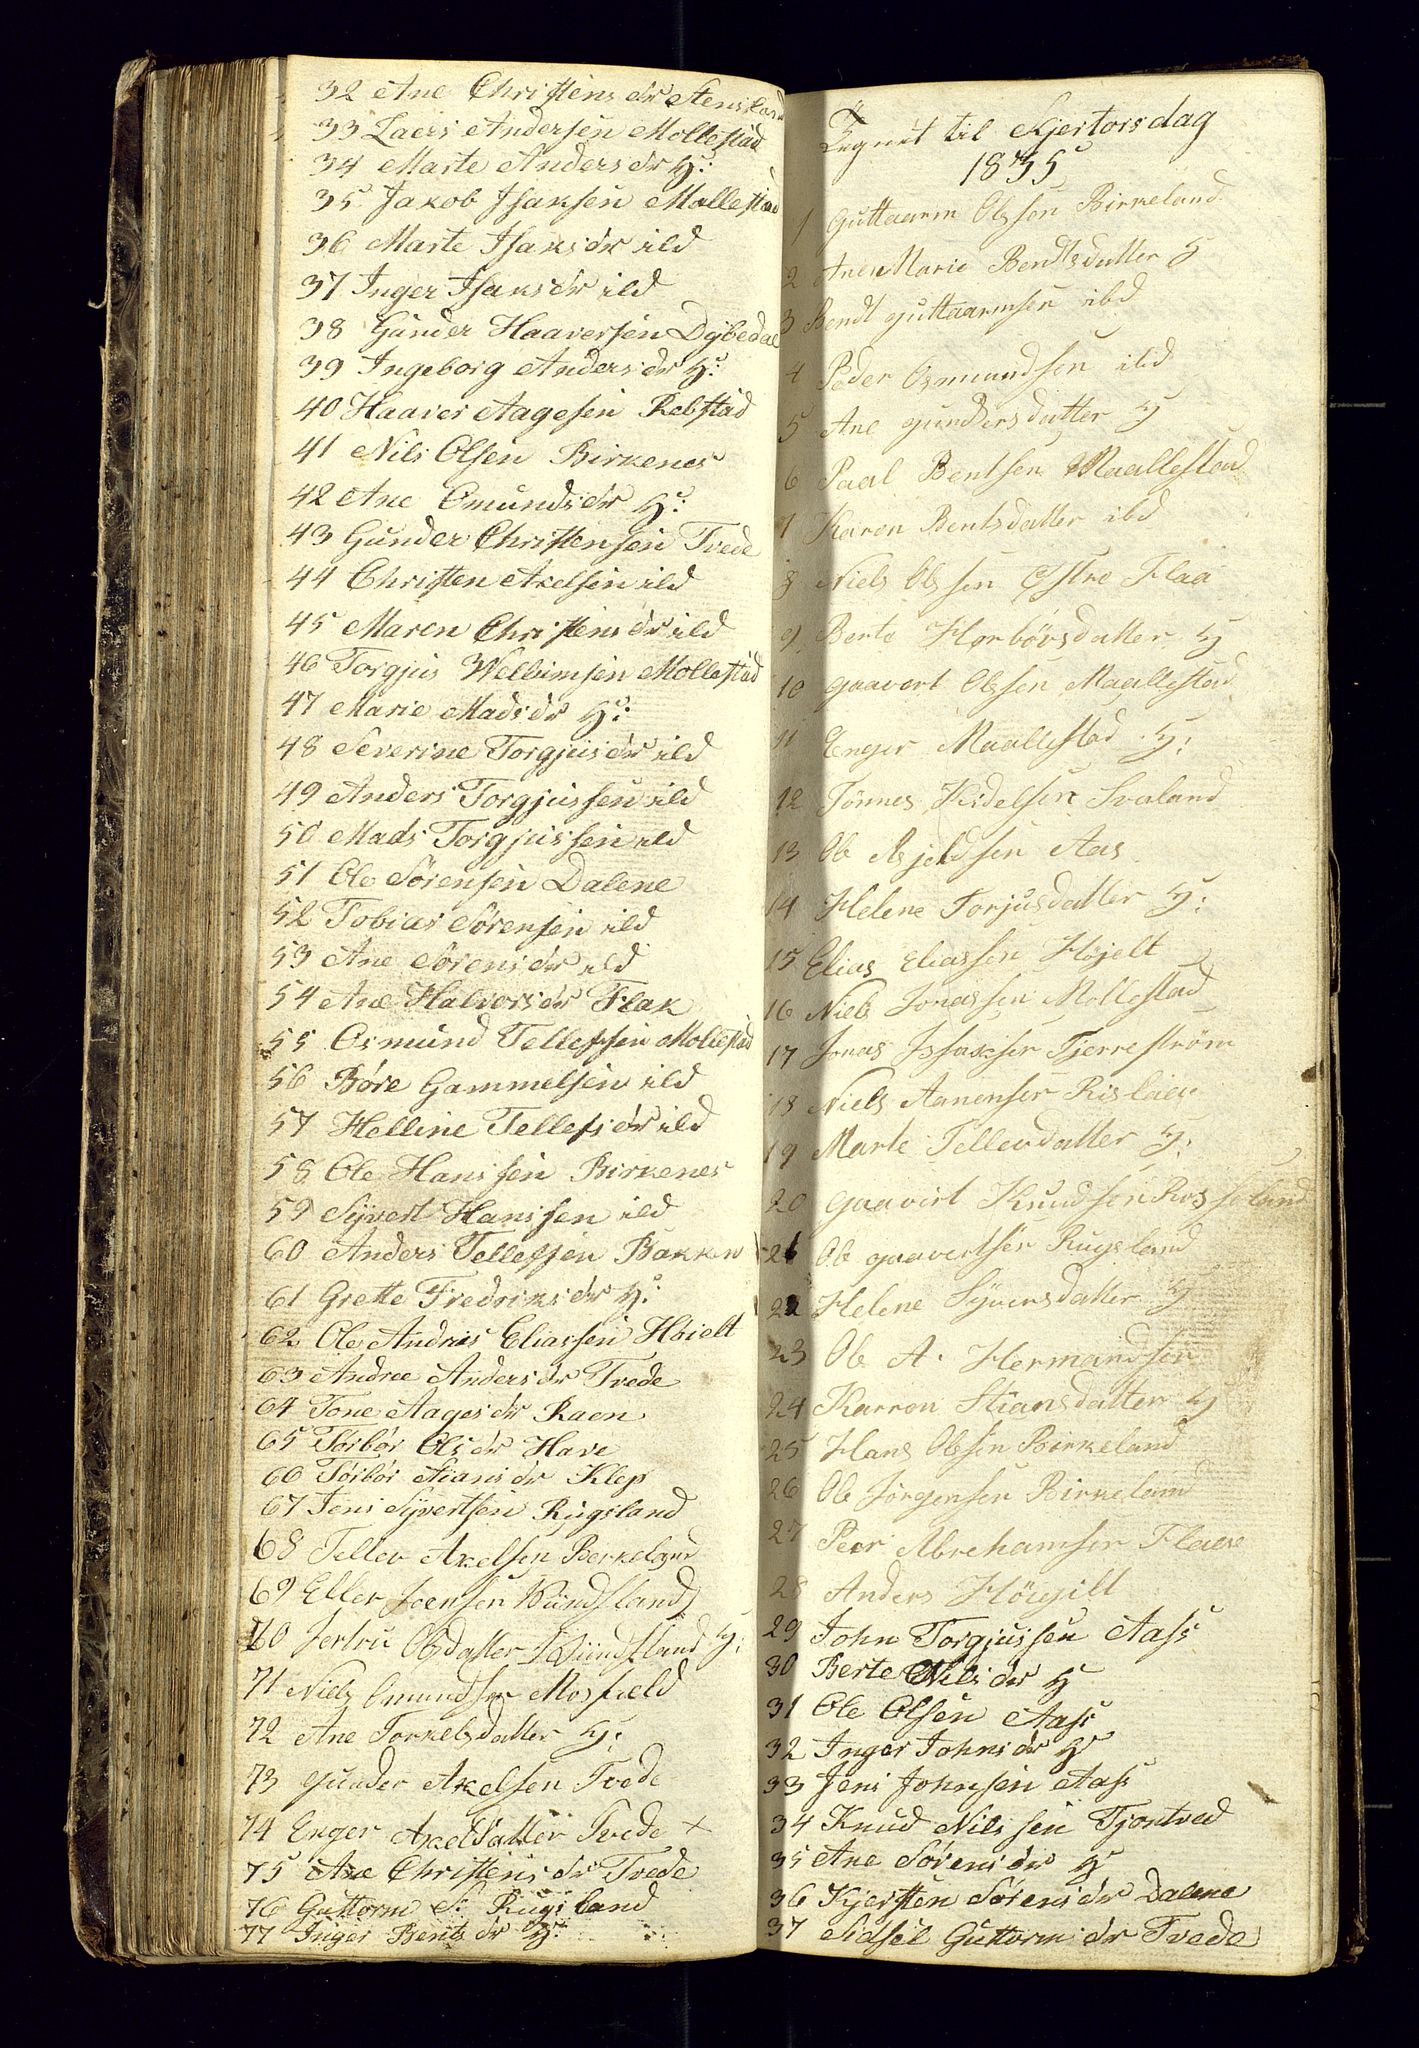 32 Ane Christens dr Stensland
33 Laers Andersen Mollestad
34 Marte Anders dr H:
35 Jakob Isaksen Mollestad
36 Marte Isaks dr ibd
37 Inger Isaks dr ibd
38 Gunder Haaversen Dybedal
39 Ingeborg Anders dr H:
40 Haaver Aagesen Rebstad
41 Nils Olsen Birkenes
42 Ane Omunds dr H:
43 Gunder Christensen Tvede
44 Christen Axelsen ibd
45 Maren Christens dr ibd
46 Torgjus Wellumsen Mollestad
47 Marie Mads dr H:
48 Severine Torgjus dr ibd
49 Anders Torgjussen ibd
50 Mads Torgjussen ibd
51 Ole Sörensen Dalene
52 Tobias Sörensen ibd
53 Ane Sörens dr ibd
54 Ane Halvors dr Flak
55 Osmund Tellefsen Mollestad
56 Böre Gammelsen ibd
57 Helline Tellefs dr ibd
58 Ole Hanssen Birkenes
59 Syvert Hanssen ibd
60 Anders Tellefsen Bakken
61 Grette Fredriks dr H:
62 Ole Andreas Eliassen Höielt
63 Andree Anders dr Tvede
64 Tone Aages dr Raen
65 Törbör Ols dr Have
66 Törbör Stians dr Klep
67 Jens Syvertsen Rugsland
68 Tellev Axelsen Berkeland
69 Eller Joensen
70 Jertru Olsdatter H:
71 Niels Omundsen Mosfield
72 Ane Torkelsdatter H:
73 Gunder Axelsen Tvede
74 Enger Axeldatter Tvede x
75 Ane Christens dr Tvede
76 Guttorm S: Rugsland
77 Inger Bents dr H:
Tegnet til Skjertorsdag
1835
1 Guttaarm Olsen Birkeland
2 Ane Marie Bendtsdatter H
3 Bendt Guttaarmsen ibd
4 Peder Osmundsen ibd
5 Ane Gundersdatter H
6 Paal Bentsen Maallestad
7 Karen Bentsdatter ibd
8 Niels Olsen Östre Flaa
9 Berte Horbörsdatter H
10 Gaavert Olsen Maallestad
11 Enger Maallestad H:
12 Tönnes Kidelsen Svaland
13 Ole Asjeldsen Aas
14 Helene Torjusdatter H:
15 Elias Eliassen Höjelt
16 Niels Jonassen Mollestad
17 Jonas Isaksen Tjerreström
18 Niels Aanensen Rislaia
19 Marte Tellevdatter H:
20 Gaavert Knudsen Rosseland
21 Ole Gaavertsen Rugsland
22 Helene Syversdatter H
23 Ole A. Hermansen
24 Karren Stiansdatter H
25 Hans Olsen Birkeland
26 Ole Jörgensen Birkeland
27 Peer Abrehamsen Flaae
28 Anders Höygilt
29 John Torgjussen Aass
30 Berte Nils dr H
31 Ole Olsen Aass
32 Inger Johns dr H
33 Jens Johnsen Aass
34 Knud Nilssen Tjontved
35 Ane Sörens dr H
36 Kjersten Sörens dr Dalene
37 Sidsel Guttorms dr Tvede